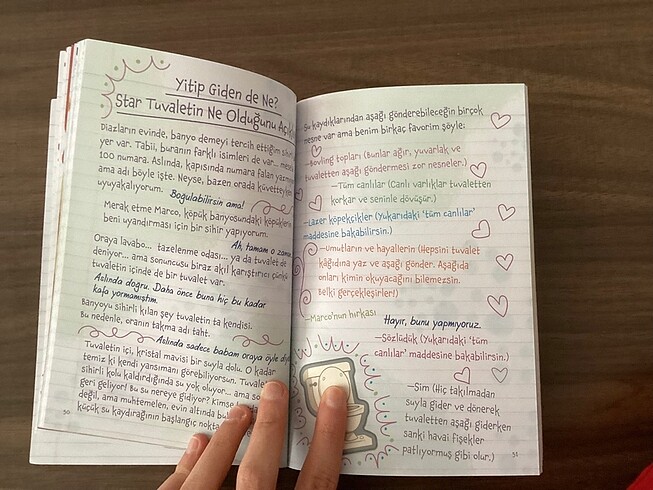 Yitip Giden de Ne?
Star Tuvaletin Ne Olduğunu
Diazların evinde, banyo demeyi tercih ettiğim
yer var. Tabii, buranın farklı isimleri de var...
100 numara. Aslında, kapısında numara falan
ama adı böyle işte. Neyse, bazen orada küvetteyken
uyuyakalıyorum.
Boğulabilirsin ama!
Merak etme Marco, köpük banyosundaki köpüklerin
beni uyandırması için bir sihir yapıyorum.
Ah, tamam o zaman
Oraya lavabo... tazelenme odası... ya da tuvalet de
deniyor... ama sonuncusu biraz akıl karıştırıcı çünkü
tuvaletin içinde de bir tuvalet var.
Aslında doğru. Daha önce buna hiç bu kadar
kafa yormamıştım.
Banyoyu sihirli kılan şey tuvaletin ta kendisi.
Bu nedenle, oranın takma adı taht.
Aslında sadece babam oraya öyle
Tuvaletin içi, kristal mavisi bir suyla dolu. O kadar
temiz ki kendi yansımanı görebiliyorsun.
sihirli kolu kaldırdığında su yok oluyor... ama
geri geliyor! Bu su nereye gidiyor?
değil, ama muhtemelen, evin altında
küçük su kaydırağının başlangıç
50
Su kaydıklarından aşağı gönderebileceğin birçok
nesne var ama benim birkaç favorim şöyle:
—Bovling topları (Bunlar ağır, yuvarlak ve
tuvaletten aşağı göndermesi zor nesneler.)
—Tüm canlılar (Canlı varlıklar tuvaletten
korkar ve seninle dövüşür.)
—Lazer köpekçikler (Yukarıdaki 'tüm canlılar'
maddesine bakabilirsin.)
—Umutların ve hayallerin (Hepsini tuvalet
kâğıdına yaz ve aşağı gönder. Aşağıda
onları kimin okuyacağını bilemezsin.
Belki gerçekleşirler!)
—Marco'nun hırkası
Hayır, bunu yapmıyoruz.
—Sözlüklük (Yukarıdaki 'tüm
canlılar' maddesine bakabilirsin.)
—Sim (Hiç takılmadan
suyla gider ve dönerek
tuvaletten aşağı giderken
sanki havai fişekler
patlıyormuş gibi olur.)
51